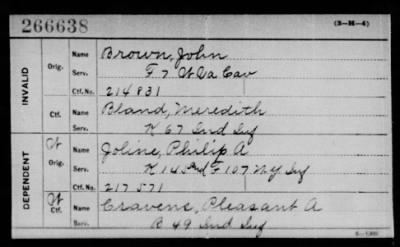 266638
(3-H-4)
INVALID
Orig. Name Brown, John
Serv. F 7 W Va Cav
Ctf. No. 214831
Ctf. Name Bland, Meredith
Serv. K 67 Ind Inf
DEPENDENT
W Orig. Name Joline, Philip A
Serv. K 14 & F 107 NY Inf
Ctf. No. 217571
W Ctf. Name Cravens, Pleasant A
Serv. B 49 Ind Inf